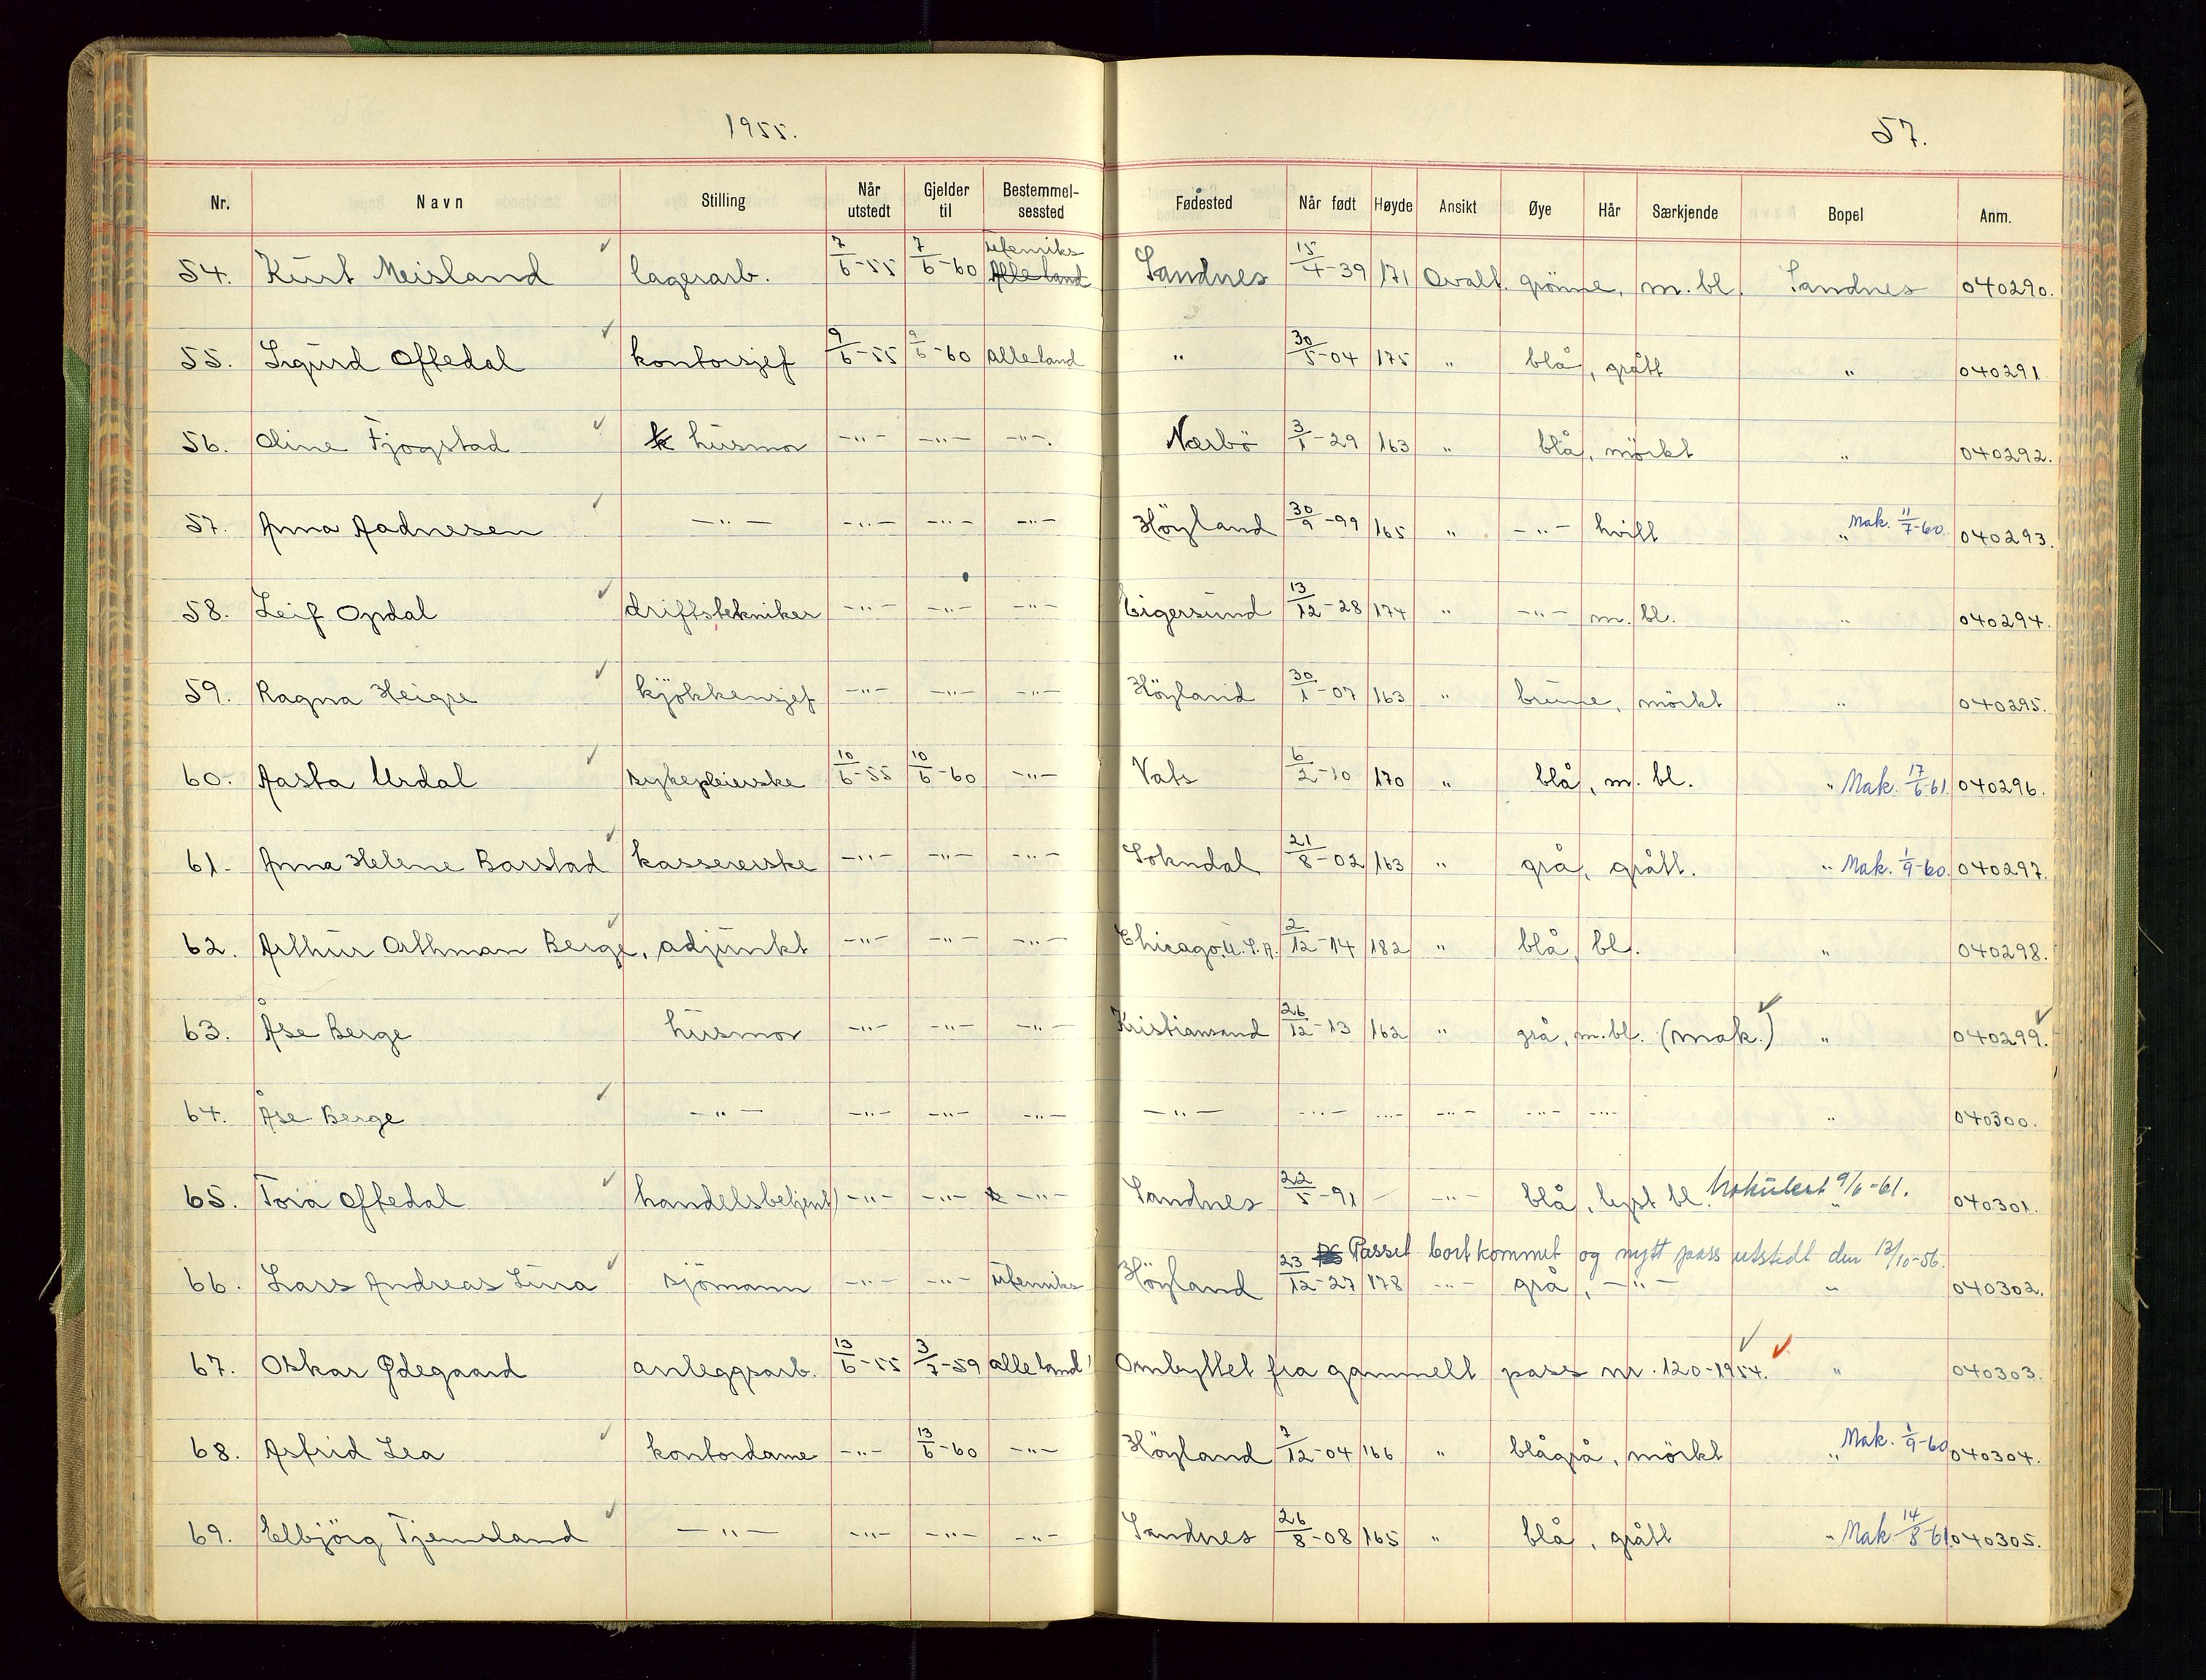 1955.
57.
Nr. Navn Stilling Når utstedt Gjelder til Bestemmel-sessted Fødested Når født Høyde Ansikt Øye Hår Særkjende Bopel Anm.
54. Kurt Meisland lagerarb. 7/6-55 7/6-60 utenriks Alle land Sandnes 15/4-39 171 Ovalt. grönne, m. bl. Sandnes 040290.
55. Sigurd Oftedal kontorsjef 9/6-55 9/6-60 alle land " 30/5-04 175 " blå, grått " 040291
56. Oline Fjogstad k husmor -"- -"- -"-. Nærbö 3/1-29 163 " blå, mörkt " 040292.
57. Anna Aadnesen -"- -"- -"- -"- Höyland 30/9-99 165 " -"- hvitt " Mak. 11/7-60. 040293.
58. Leif Opdal driftstekniker -"- -"- -"- Eigersund 13/12-28 174 " -"- m. bl. " 040294.
59. Ragna Heigre kjökkensjef -"- -"- -"- Höyland 30/1-07 163 " brune, mörkt " 040295.
60. Aasta Urdal sykepleierske 10/6-55 10/6-60 -"- Vats 6/2-10 170 " blå, m. bl. " Mak. 17/6-61. 040296.
61. Anna Helene Barstad kassererske -"- -"- -"- Sokndal 21/8-02 163 " grå, grått. " Mak. 1/9-60. 040297.
62. Arthur Orthman Berge, adjunkt -"- -"- -"- Chicago, U.S.A. 2/12-14 182 " blå, bl. " 040298.
63. Åse Berge husmor -"- -"- -"- Kristiansand 26/12-13 162 " grå, m. bl. (mak.) " 040299.
64. Åse Berge -"- -"- -"- -"- -"- -"- -"- -"- -"- -"- " 040300.
65. Tora Oftedal handelsbetjent -"- -"- -"- Sandnes 22/5-91 - -"- blå, lyst bl. Makulert 9/6-61. " 040301.
Passet bortkommet og nytt pass utstedt den 12/10-56.
66. Lars Andreas Lura sjömann -"- -"- utenriks Höyland 23/12-27 178 -"- grå, -"- " 040302.
67. Oskar Ødegaard anleggsarb. 13/6-55 3/7-59 alle land Ombyttet fra gammelt pass nr. 120-1954. " 040303.
68. Astrid Lea kontordame -"- 13/6-60 -"- Höyland 7/12-04 166 " blågrå, mörkt " Mak. 1/9-60 040304.
69. Elbjörg Tjemsland -"- -"- -"- -"- Sandnes 26/8-08 165 " blå, grått " Mak. 14/8-61. 040305.